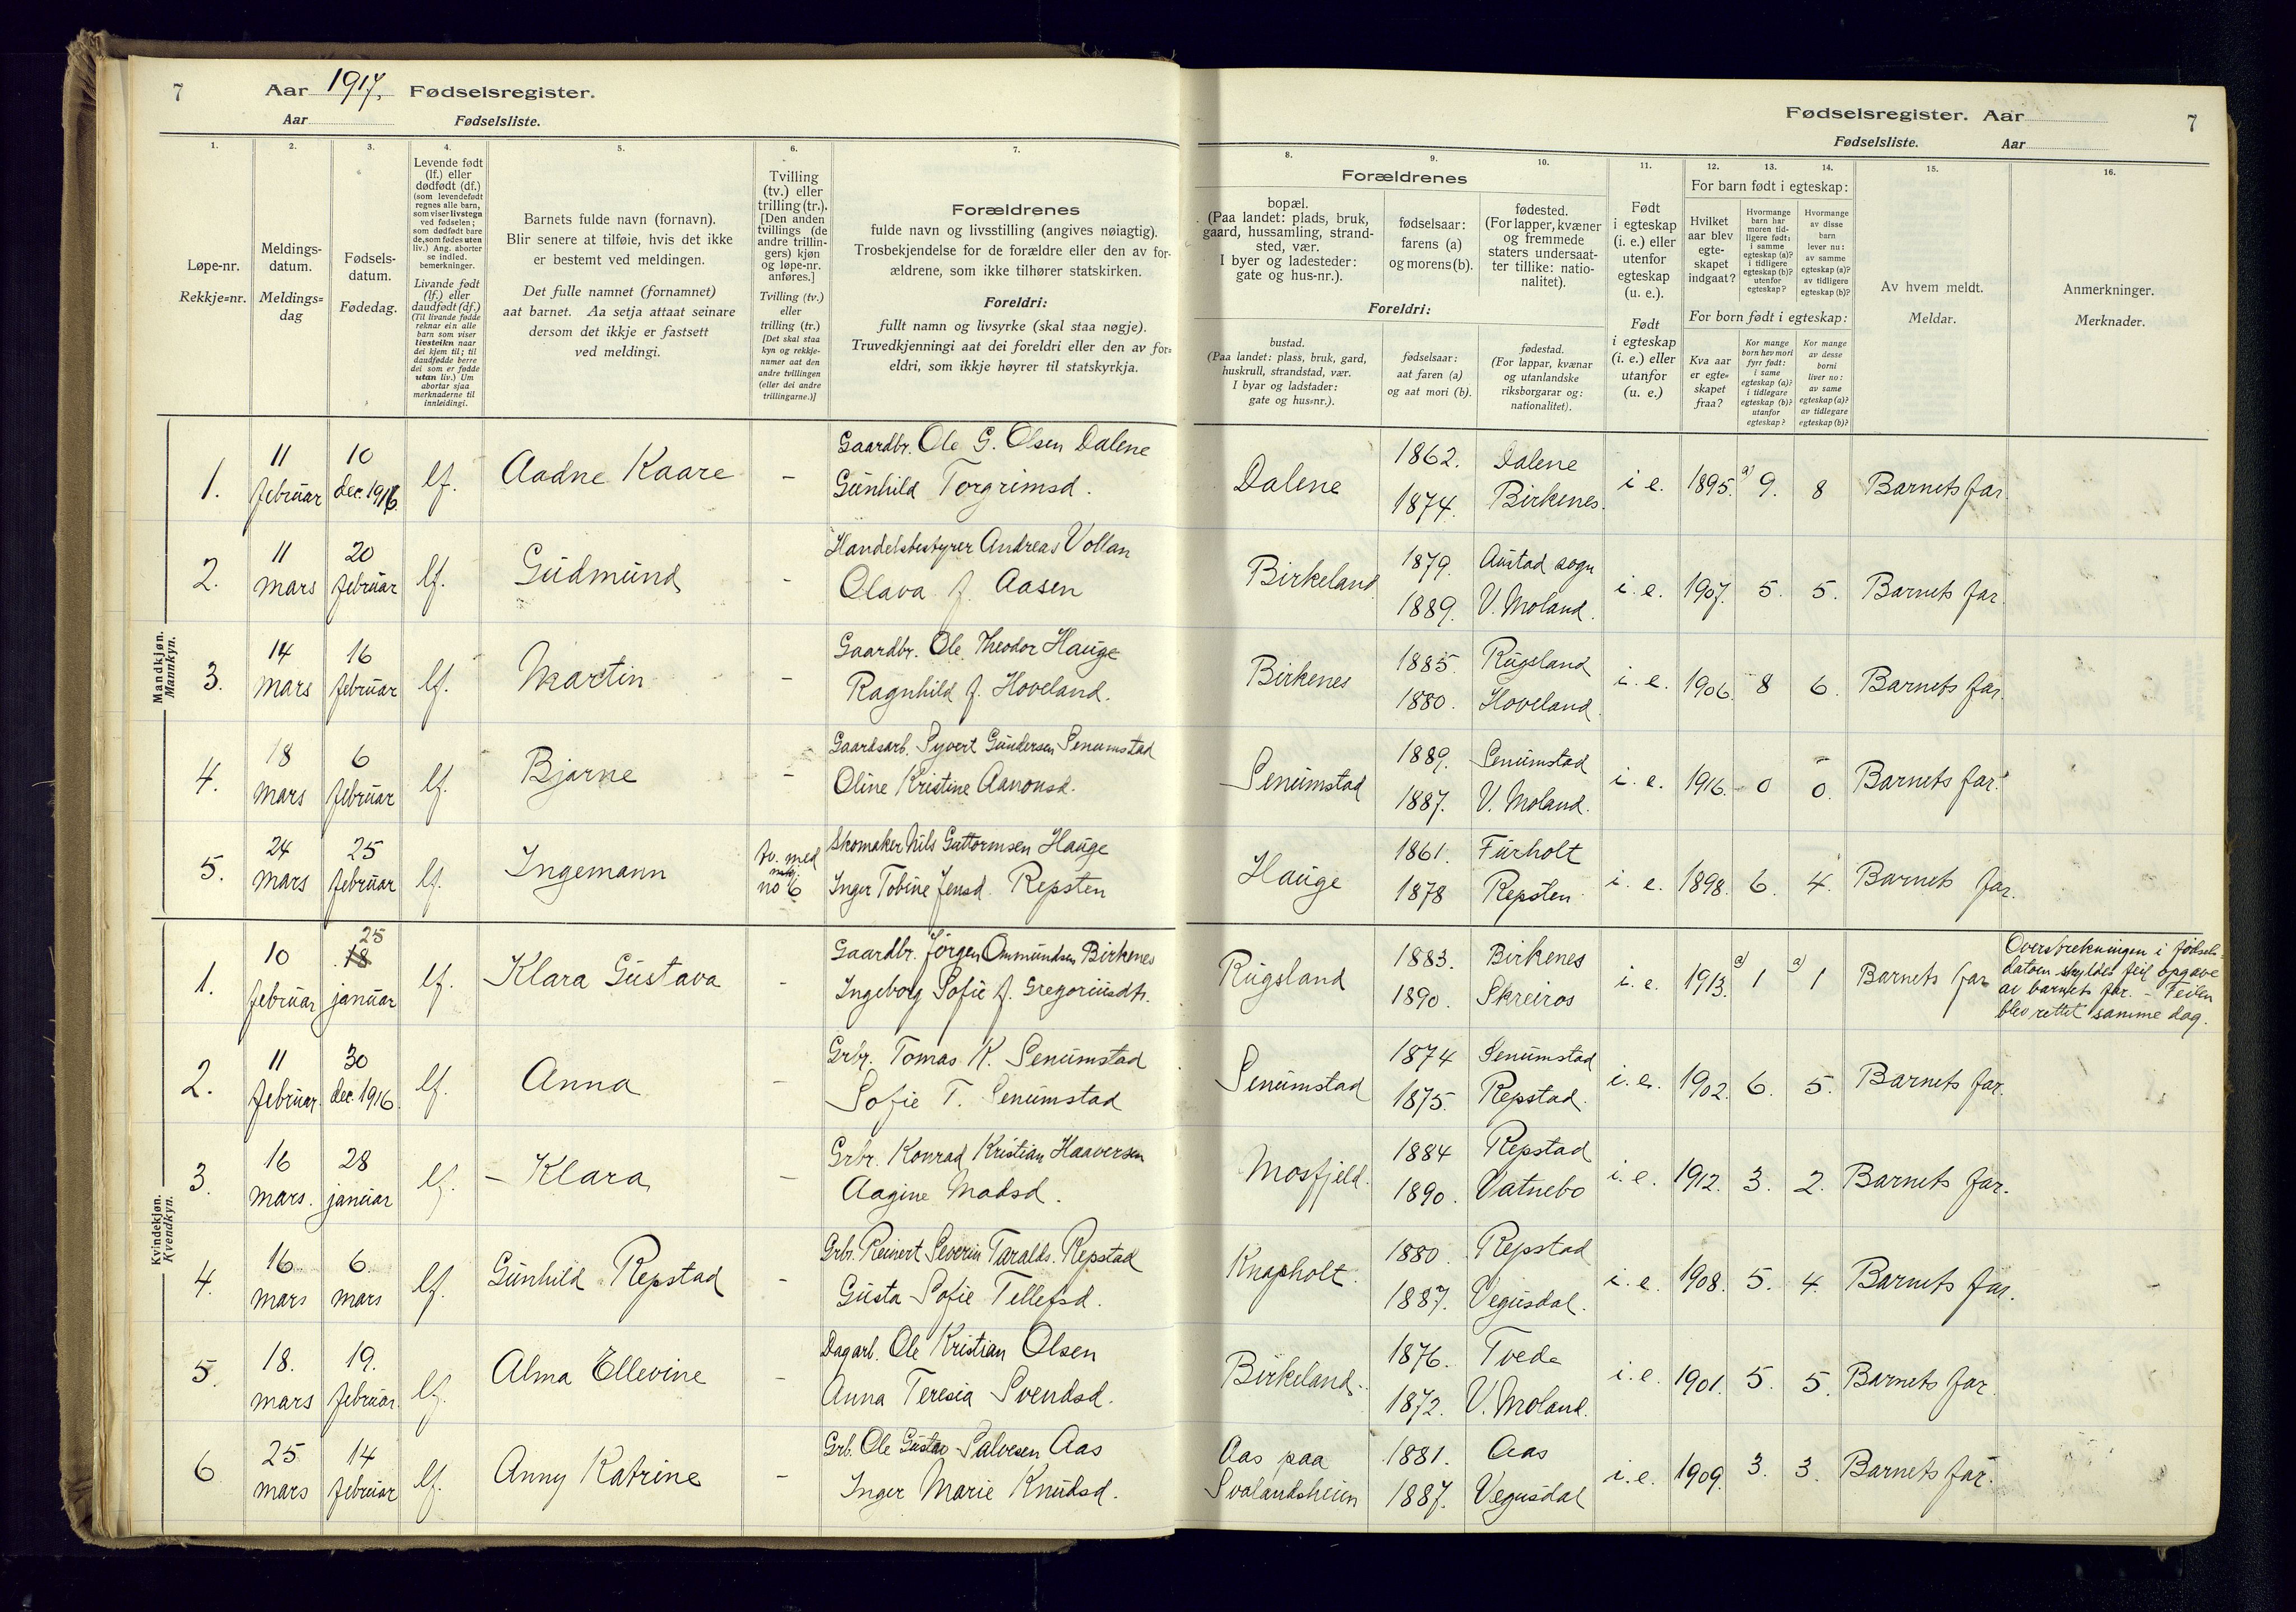 7 Aar 1917. Fødselsregister.
Aar Fødselsliste.
Fødselsregister. Aar 7
Fødselsliste. Aar
1. 2. 3. 4. 5. 6. 7.
Løpe-nr.
Rekkje=nr.
Meldings-
datum.
Meldings=
dag
Fødsels-
datum.
Fødedag.
Levende født
(lf.) eller
dødfødt (df.)
(som levendefødt
regnes alle barn,
som viser livstegn
ved fødselen;
som dødfødt bare
de, som fødes uten
liv.) Ang. aborter
se indled.
bemerkninger.
Livande født
(lf.) eller
daudfødt (df.)
(Til livande fødde
reknar ein alle
barn som viser
livsteikn naar
dei kjem til; til
daudfødde berre
dei som er fødde
utan liv.) Um
abortar sjaa
merknaderne til
innleidingi.
Barnets fulde navn (fornavn).
Blir senere at tilføie, hvis det ikke
er bestemt ved meldingen.
Det fulle namnet (fornamnet)
aat barnet. Aa setja attaat seinare
dersom det ikkje er fastsett
ved meldingi.
Tvilling
(tv.) eller
trilling (tr.).
[Den anden
tvillings (de
andre trillin-
gers) kjøn
og løpe-nr.
anføres.]
Tvilling (tv.)
eller
trilling (tr.)
[Det skal staa
kyn og rekkje-
numer aat den
andre tvillingen
(eller dei andre
trillingarne.)]
Forældrenes
fulde navn og livsstilling (angives nøiagtig).
Trosbekjendelse for de forældre eller den av for-
ældrene, som ikke tilhører statskirken.
Foreldri:
fullt namn og livsyrke (skal staa nøgje).
Truvedkjenningi aat dei foreldri eller den av for=
eldri, som ikkje høyrer til statskyrkja.
8. 9. 10. 11. 12. 13. 14. 15. 16.
Forældrenes
bopæl.
(Paa landet: plads, bruk,
gaard, hussamling, strand-
sted, vær.
I byer og ladesteder:
gate og hus-nr.).
fødselsaar:
farens (a)
og morens (b).
fødested.
(For lapper, kvæner
og fremmede
staters undersaat-
ter tillike: natio-
nalitet).
Foreldri:
bustad.
(Paa landet: plass, bruk, gard,
huskrull, strandstad, vær.
I byar og ladstader:
gate og hus=nr.).
fødselsaar:
aat faren (a)
og aat mori (b).
fødestad.
(For lappar, kvænar
og utanlandske
riksborgarar og:
nationalitet).
Født
i egteskap
(i. e.) eller
utenfor
egteskap
(u. e.).
Født
i egteskap
(i. e.) eller
utanfor
(u. e.)
For barn født i egteskap:
Hvilket
aar blev
egte-
skapet
indgaat?
Hvormange
barn har
moren tid-
ligere født:
i samme
egteskap (a)?
i tidligere
egteskap (b)?
utenfor
egteskap?
Hvormange
av disse
barn
lever nu:
av samme
egteskap (a)?
av tidligere
egteskap (b)?
For born født i egteskap:
Kva aar
er egte=
skapet
fraa?
Kor mange
born hev mori
fyrr født:
i same
egteskap (a)?
i tidlegare
egteskap (b)?
utanfor
egteskap?
Kor mange
av desse
borni
liver no:
av same
egteskap (a)?
av tidlegare
egteskap (b)?
Av hvem meldt.
Meldar.
Anmerkninger.
Merknader.
Mandkjøn.
Mannkyn.
1. 11 februar 10 dec. 1916 lf. Aadne Kaare – Gaardbr. Ole G. Olsen Dalene
Gunhild Torgrimsd.
Dalene 1862. Dalene i e. 1895. a) 9. 8 Barnets far.
1874. Birkenes.
2. 11 mars 20 februar lf. Gudmund - Handelsbestyrer Andreas Vollan
Olava f. Aasen
Birkeland 1879. Austad sogn i. e. 1907. 5. 5. Barnets far.
1889. V. Moland.
3. 14 mars 16 februar lf. Martin – Gaardbr. Ole Theodor Hauge
Ragnhild f. Hoveland.
Birkenes 1885 Rugsland i. e. 1906. 8 6. Barnets far.
1880. Hoveland.
4. 18 mars 6 februar lf. Bjarne – Gaardsarb. Syvert Gundersen Senumstad
Oline Kristine Aanonsd.
Senumstad 1889. Senumstad i. e. 1916. 0 0. Barnets far.
1887. V. Moland.
5. 24 mars 25 februar lf. Ingemann tv. med no 6 Skomaker Nils Guttormsen Hauge
Inger Tobine Jensd. Repsten
Hauge 1861. Furholt i. e. 1898. 6. 4. Barnets far.
1878 Repsten
Kvindekjøn.
Kvendkyn.
1. 10 februar 18 25 januar lf. Klara Gustava - Gaardbr. Jørgen Ommundsen Birkenes
Ingeborg Sofie f. Gregoriusdtr.
Rugsland 1883. Birkenes i. e. 1913. a) 1 a) 1 Barnets far
1890. Skreiros
Overstrekningen i fødsels-
datoen skyldes feil opgave
av barnets far. – Feilen
blev rettet samme dag.
2. 11 februar 30 dec. 1916. lf. Anna – Grbr. Tomas K. Senumstad
Sofie T. Senumstad
Senumstad 1874 Senumstad i. e. 1902. 6. 5. Barnets far.
1875. Repstad.
3. 16 mars. 28 januar lf. – Klara – Grbr. Konrad Kristian Haaversen
Aagine Madsd.
Mosfjeld. 1884 Repstad i. e. 1912. 3. 2. Barnets far.
1890. Vatnebo
4. 16 mars 6. mars lf. Gunhild Repstad - Grbr. Reinert Severin Taralds. Repstad
Gusta Sofie Tellefsd.
Knapholt. 1880. Repstad i. e. 1908. 5. 4. Barnets far.
1887. Vegusdal.
5. 18. mars 19. februar. lf. Alma Ellevine - Dagarb. Ole Kristian Olsen
Anna Teresia Svendsd.
Birkeland. 1876. Tvede i. e. 1901. 5. 5. Barnets far.
1872. V. Moland.
6 25 mars 14 februar lf. Anny Katrine – Grb. Ole Gustav Salvesen Aas
Inger Marie Knudsd.
Aas paa 1881. Aas i. e. 1909. 3. 3. Barnets far.
Svalandsheien 1887. Vegusdal